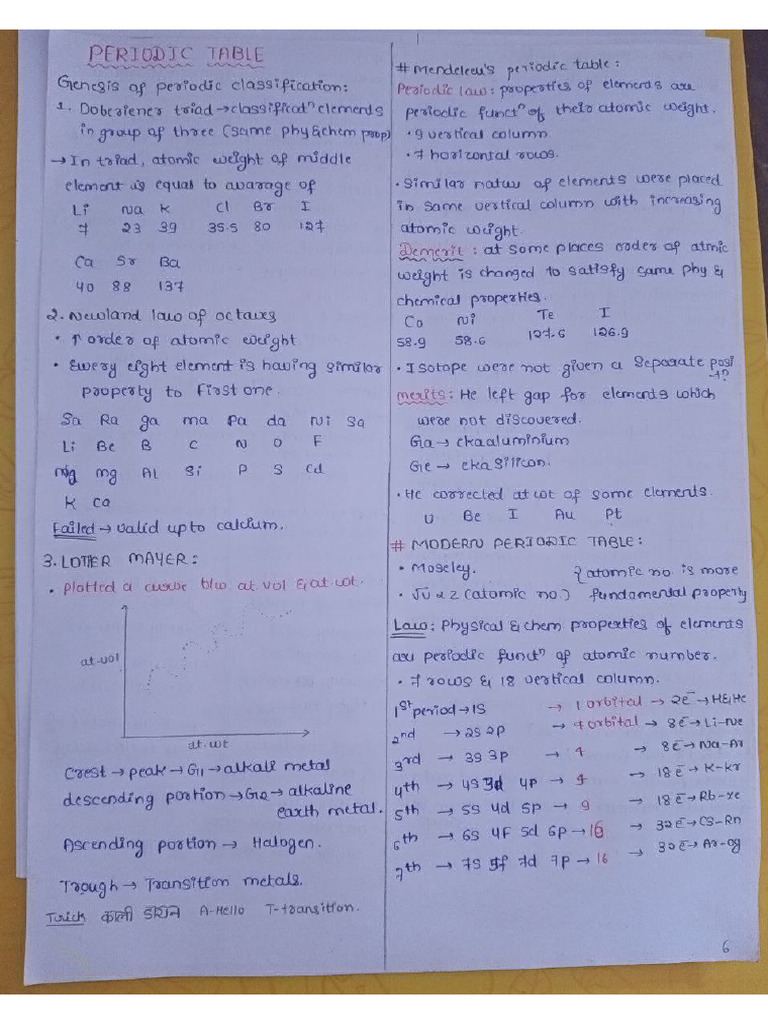 PERIODIC TABLE
Genesis of periodic classification:
1. Doberiener triad → classificatⁿ elements
in group of three (same phy & chem prop)
→ In triad, atomic weight of middle
element is equal to avarage of
Li Na K Cl Br I
7 23 39 35.5 80 127
Ca Sr Ba
40 88 137
2. Newland law of octaves
• ↑ order of atomic weight
• Every eight element is having similar
property to first one.
Sa Ra ga ma pa da Ni Sa
Li Be B C N O F
Na mg AL Si P S Cd
K Ca
Failed → valid upto calcium.
3. LOTHER MAYER:
• Plotted a curve b/w at.vol & at.wt.
at.vol
at.wt
Crest → peak → G11 → alkali metal
descending portion → G12 → alkaline
earth metal.
Ascending portion → Halogen.
Trough → Transition metals.
Trick काली डायन A-Hello T-transition.
# Mendeleeu's periodic table:
Periodic law: properties of elements are
periodic functⁿ of their atomic weight.
• 9 vertical column
• 7 horizontal rows.
• Similar natur of elements were placed
in same vertical column with increasing
atomic weight.
Demerit: at some places order of atmic
weight is changed to satisfy same phy &
chemical properties.
Co Ni Te I
58.9 58.6 127.6 126.9
• Isotope were not given a seperate posi
→?
merits: He left gap for elements which
were not discovered.
Ga → ekaaluminium
Ge → eka silicon.
• He corrected at wt of some elements.
U Be I Au Pt
# MODERN PERIODIC TABLE:
• Moseley. { atomic no. is more
• √ν ∝ Z (atomic no.) fundamental property
Law: Physical & chem. properties of elements
are periodic functⁿ of atomic number.
• 7 rows & 18 vertical column.
1st period → 1S → 1 orbital → 2e⁻ → H & He
2nd → 2S 2p → 4 orbital → 8e⁻ → Li-Ne
3rd → 3S 3p → 4 8e⁻ → Na-Ar
4th → 4S 3d 4p → 9 → 18e⁻ → K-Kr
5th → 5S 4d 5p → 9 → 18e⁻ → Rb-xe
6th → 6S 4F 5d 6p → 16 → 32e⁻ → CS-Rn
7th → 7S 5f 7d 7p → 16 → 30e⁻ → Ar-og
6